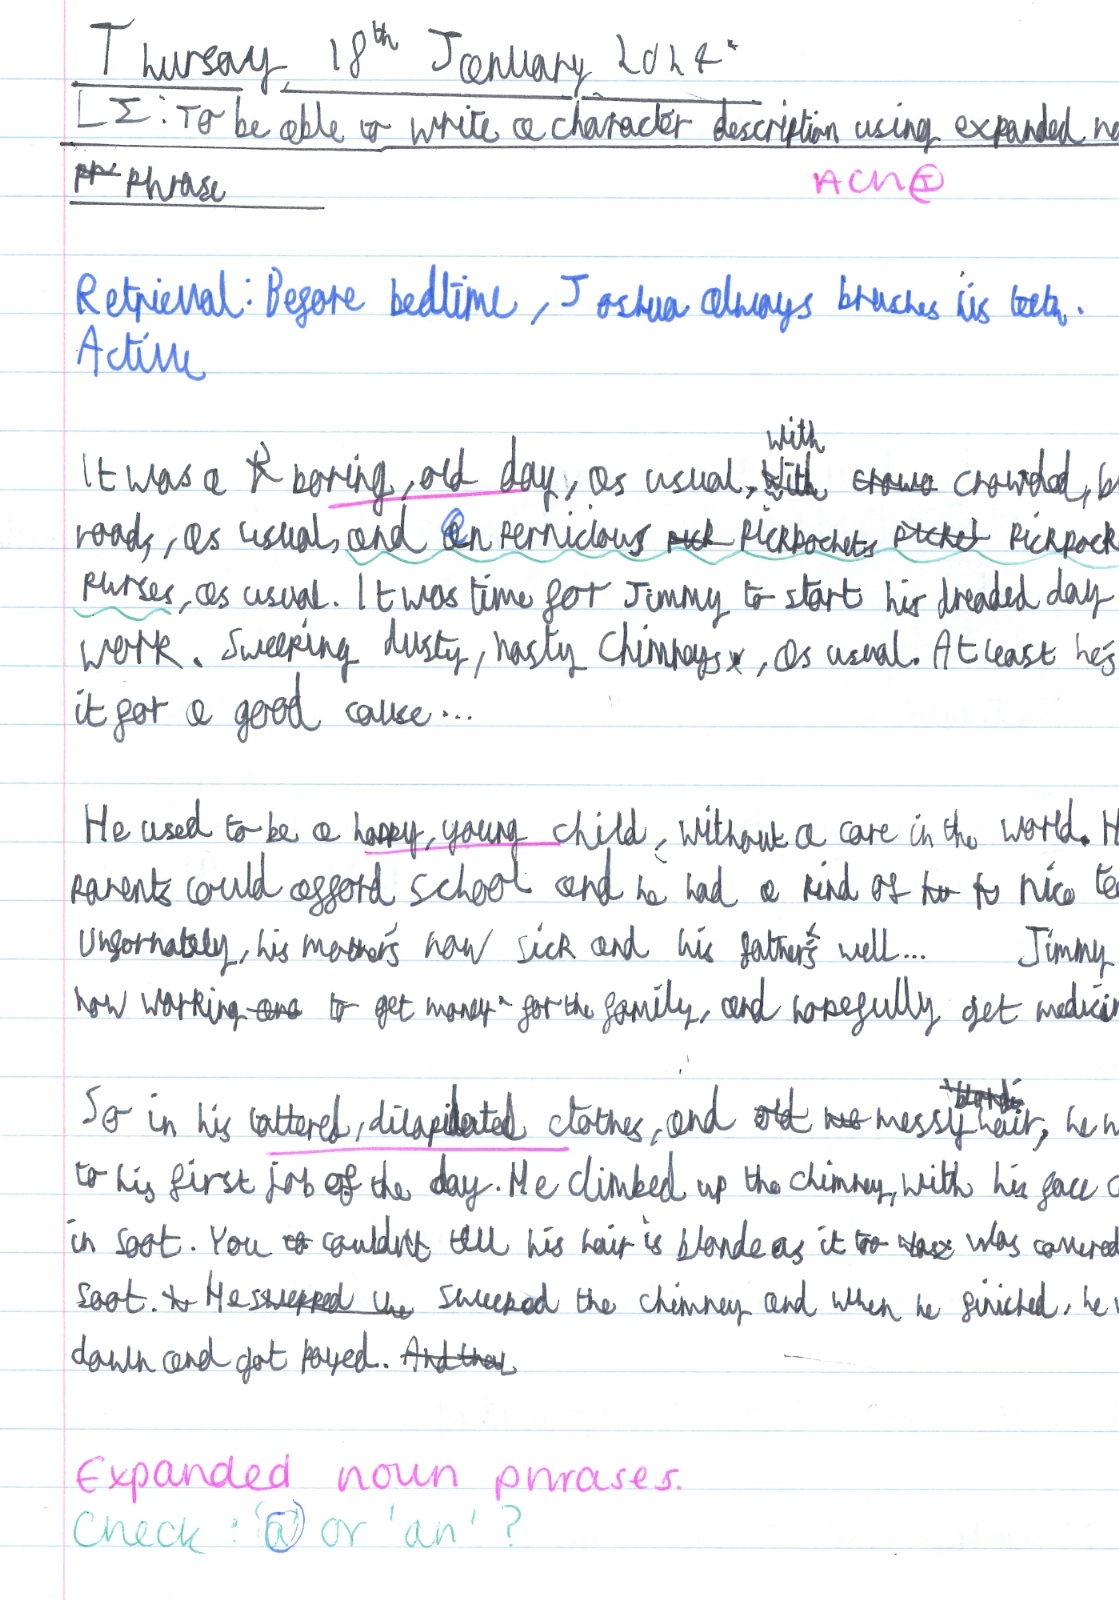 Thursay 18th January 2024.
LI: To be able to write a character description using expanded no
phrase
ACh I
Retrieval: Before bedtime, Joshua always brushes his teeth.
Active
with
It was a boring, old day, as usual, with crowded, b
roads, as usual, and an pernicious pickpockets pickpock
purses, as usual. It was time for Jimmy to start his dreaded day
work. Sweeping dusty, nasty chimneys, as usual. At least he's
it for a good cause...
He used to be a happy, young child, without a care in the world. H
parents could afford school and he had a kind of nice te
Unfornately, his mother's now sick and his father's well... Jimmy
now working to get money for the family, and hopefully get medicin
So in his tattered, dilapidated clothes, and messy hair, he w
to his first job of the day. He climbed up the chimney, with his face c
in soot. You couldn't tell his hair is blonde as it was covered
soot. He sweeped the chimney and when he finiched, he w
down and got payed.
Expanded noun phrases.
Check: 'a' or 'an'?